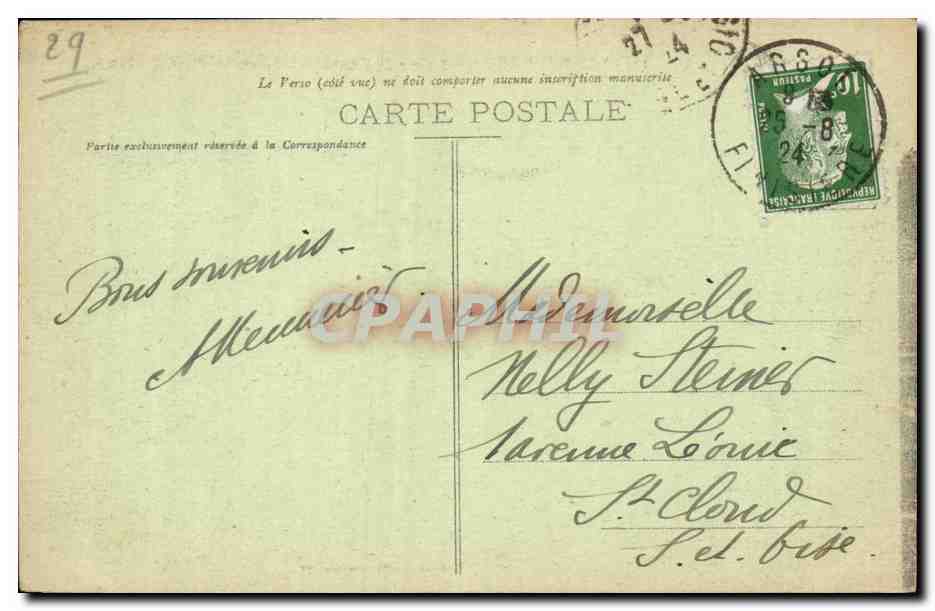 29
Le Verso (côté vue) ne doit comporter aucune inscription manuscrite
CARTE POSTALE
Partie exclusivement réservée à la Correspondance
27 -4
25 -8
24
FINISTERE
10c
PASTEUR
POSTES
REPUBLIQUE FRANÇAISE
Bons souvenirs -
AMeunier
CPAPHIL
Mademoiselle
Nelly Steiner
1 avenue Léonie
St Cloud
S. et. Oise.